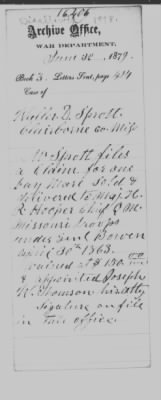 16406
Archive Office,
WAR DEPARTMENT,
June 30, 1879.
Book 3, Letters Sent, page 414
Case of
Walter D Sprott
Claiborne co Miss
Mr Sprott files
a claim for one
bay Mare Sold &
delivered to Maj. H.
L Hooper Chief Q M
Missouri troops
under Genl Bowen
April 30th 1863.
valued at $ 150.
& appointed Joseph
W Thomson his atty
Signature on file
in this office.